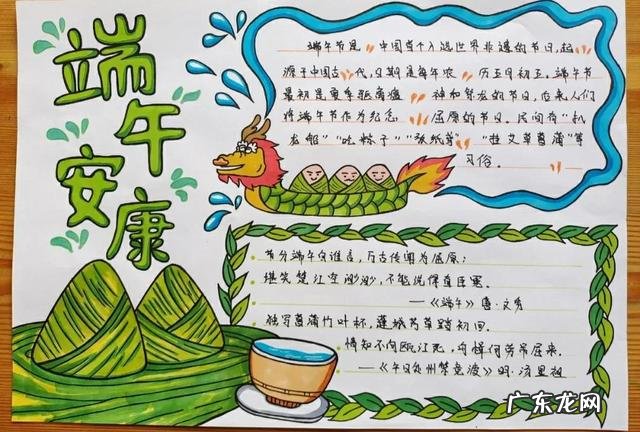 端午安康
端午节是 中国首个入选世界非遗的节日,起
源于中国古 代,日期是每年农 历五月初五。端午节
最初是夏季驱离瘟 神和祭龙的节日,后来人们
将端午节作为纪念 屈原的节日。民间有“扒
龙船”“吃粽子”“放纸鸢”“挂艾草菖蒲”等
习俗。
节分端午自谁言,万古传闻为屈原;
堪笑楚江空渺渺,不能洗得直臣冤。
——《端午》唐·文秀
独写菖蒲竹叶杯,蓬城芳草踏初回。
情知不向瓯江死,舟楫何劳吊屈来.
——《午日处州禁竞渡》明·汤显祖
广东龙网